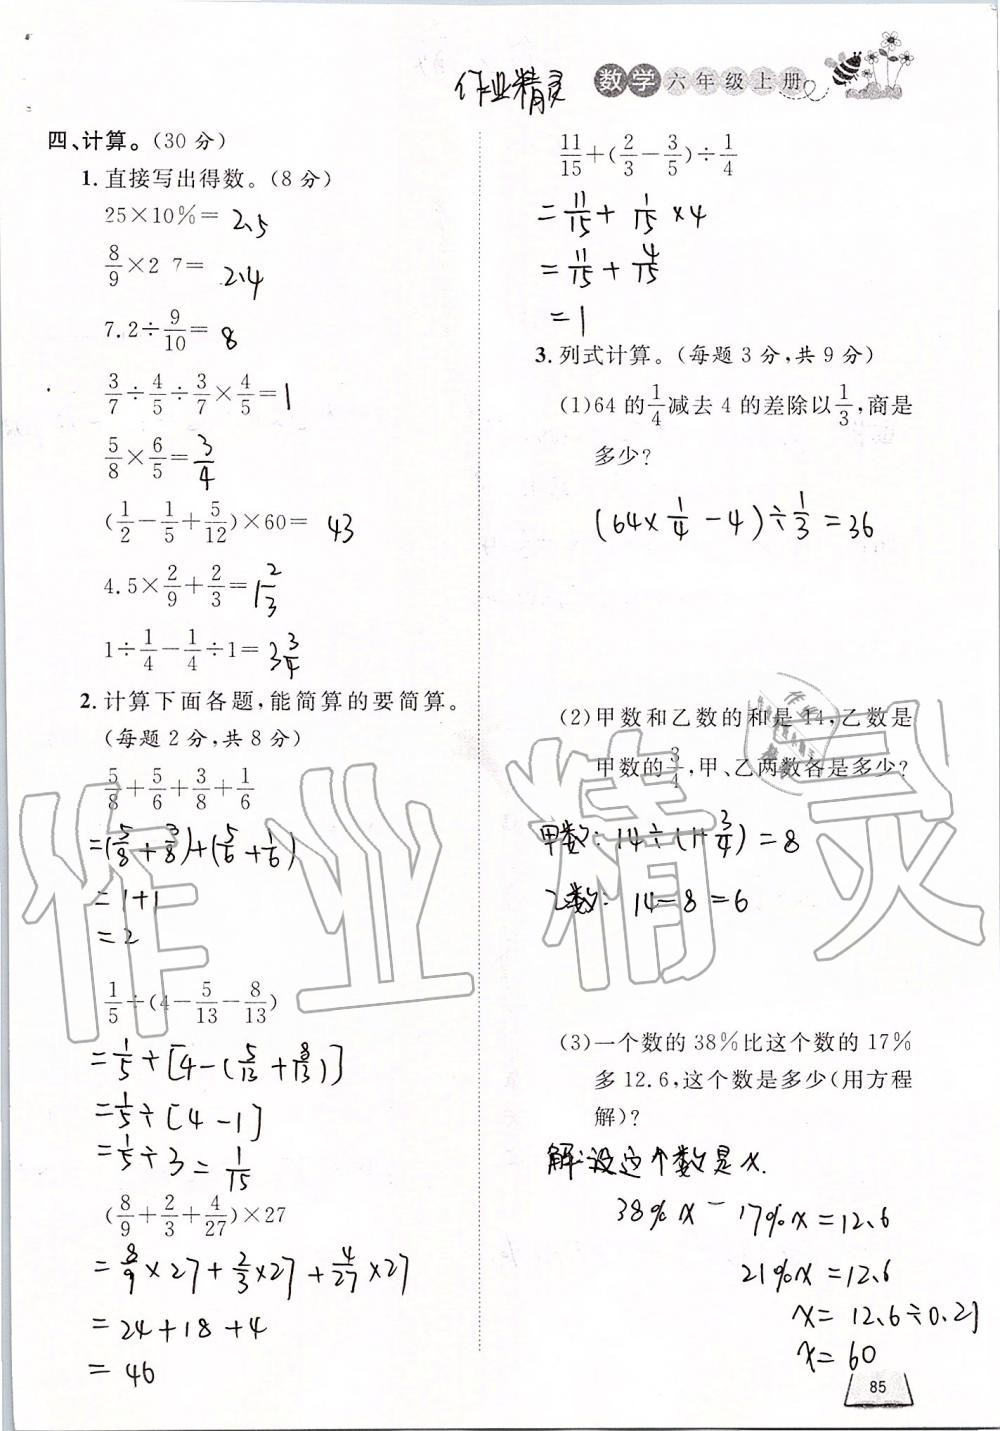 作业精灵
数学六年级上册
四、计算。(30分)
1. 直接写出得数。(8分)
25×10%= 2.5
8/9×2 7= 2.4
7.2÷9/10= 8
3/7÷4/5÷3/7×4/5=1
5/8×6/5=3/4
(1/2-1/5+5/12)×60= 43
4.5×2/9+2/3=1 2/3
1÷1/4-1/4÷1=3 3/4
2. 计算下面各题,能简算的要简算。
(每题2分,共8分)
5/8+5/6+3/8+1/6
=(5/8+3/8)+(5/6+1/6)
=1+1
=2
1/5÷(4-5/13-8/13)
=1/5÷[4-(5/13+8/13)]
=1/5÷[4-1]
=1/5÷3=1/15
(8/9+2/3+4/27)×27
=8/9×27+2/3×27+4/27×27
=24+18+4
=46
11/15+(2/3-3/5)÷1/4
=11/15+1/15×4
=11/15+4/15
=1
3. 列式计算。(每题3分,共9分)
(1)64的1/4减去4的差除以1/3,商是
多少?
(64×1/4-4)÷1/3=36
(2)甲数和乙数的和是14,乙数是
甲数的3/4,甲、乙两数各是多少?
甲数:14÷(1+3/4)=8
乙数:14-8=6
(3)一个数的38%比这个数的17%
多12.6,这个数是多少(用方程
解)?
解:设这个数是x.
38%x-17%x=12.6
21%x=12.6
x=12.6÷0.21
x=60
85
作业精灵